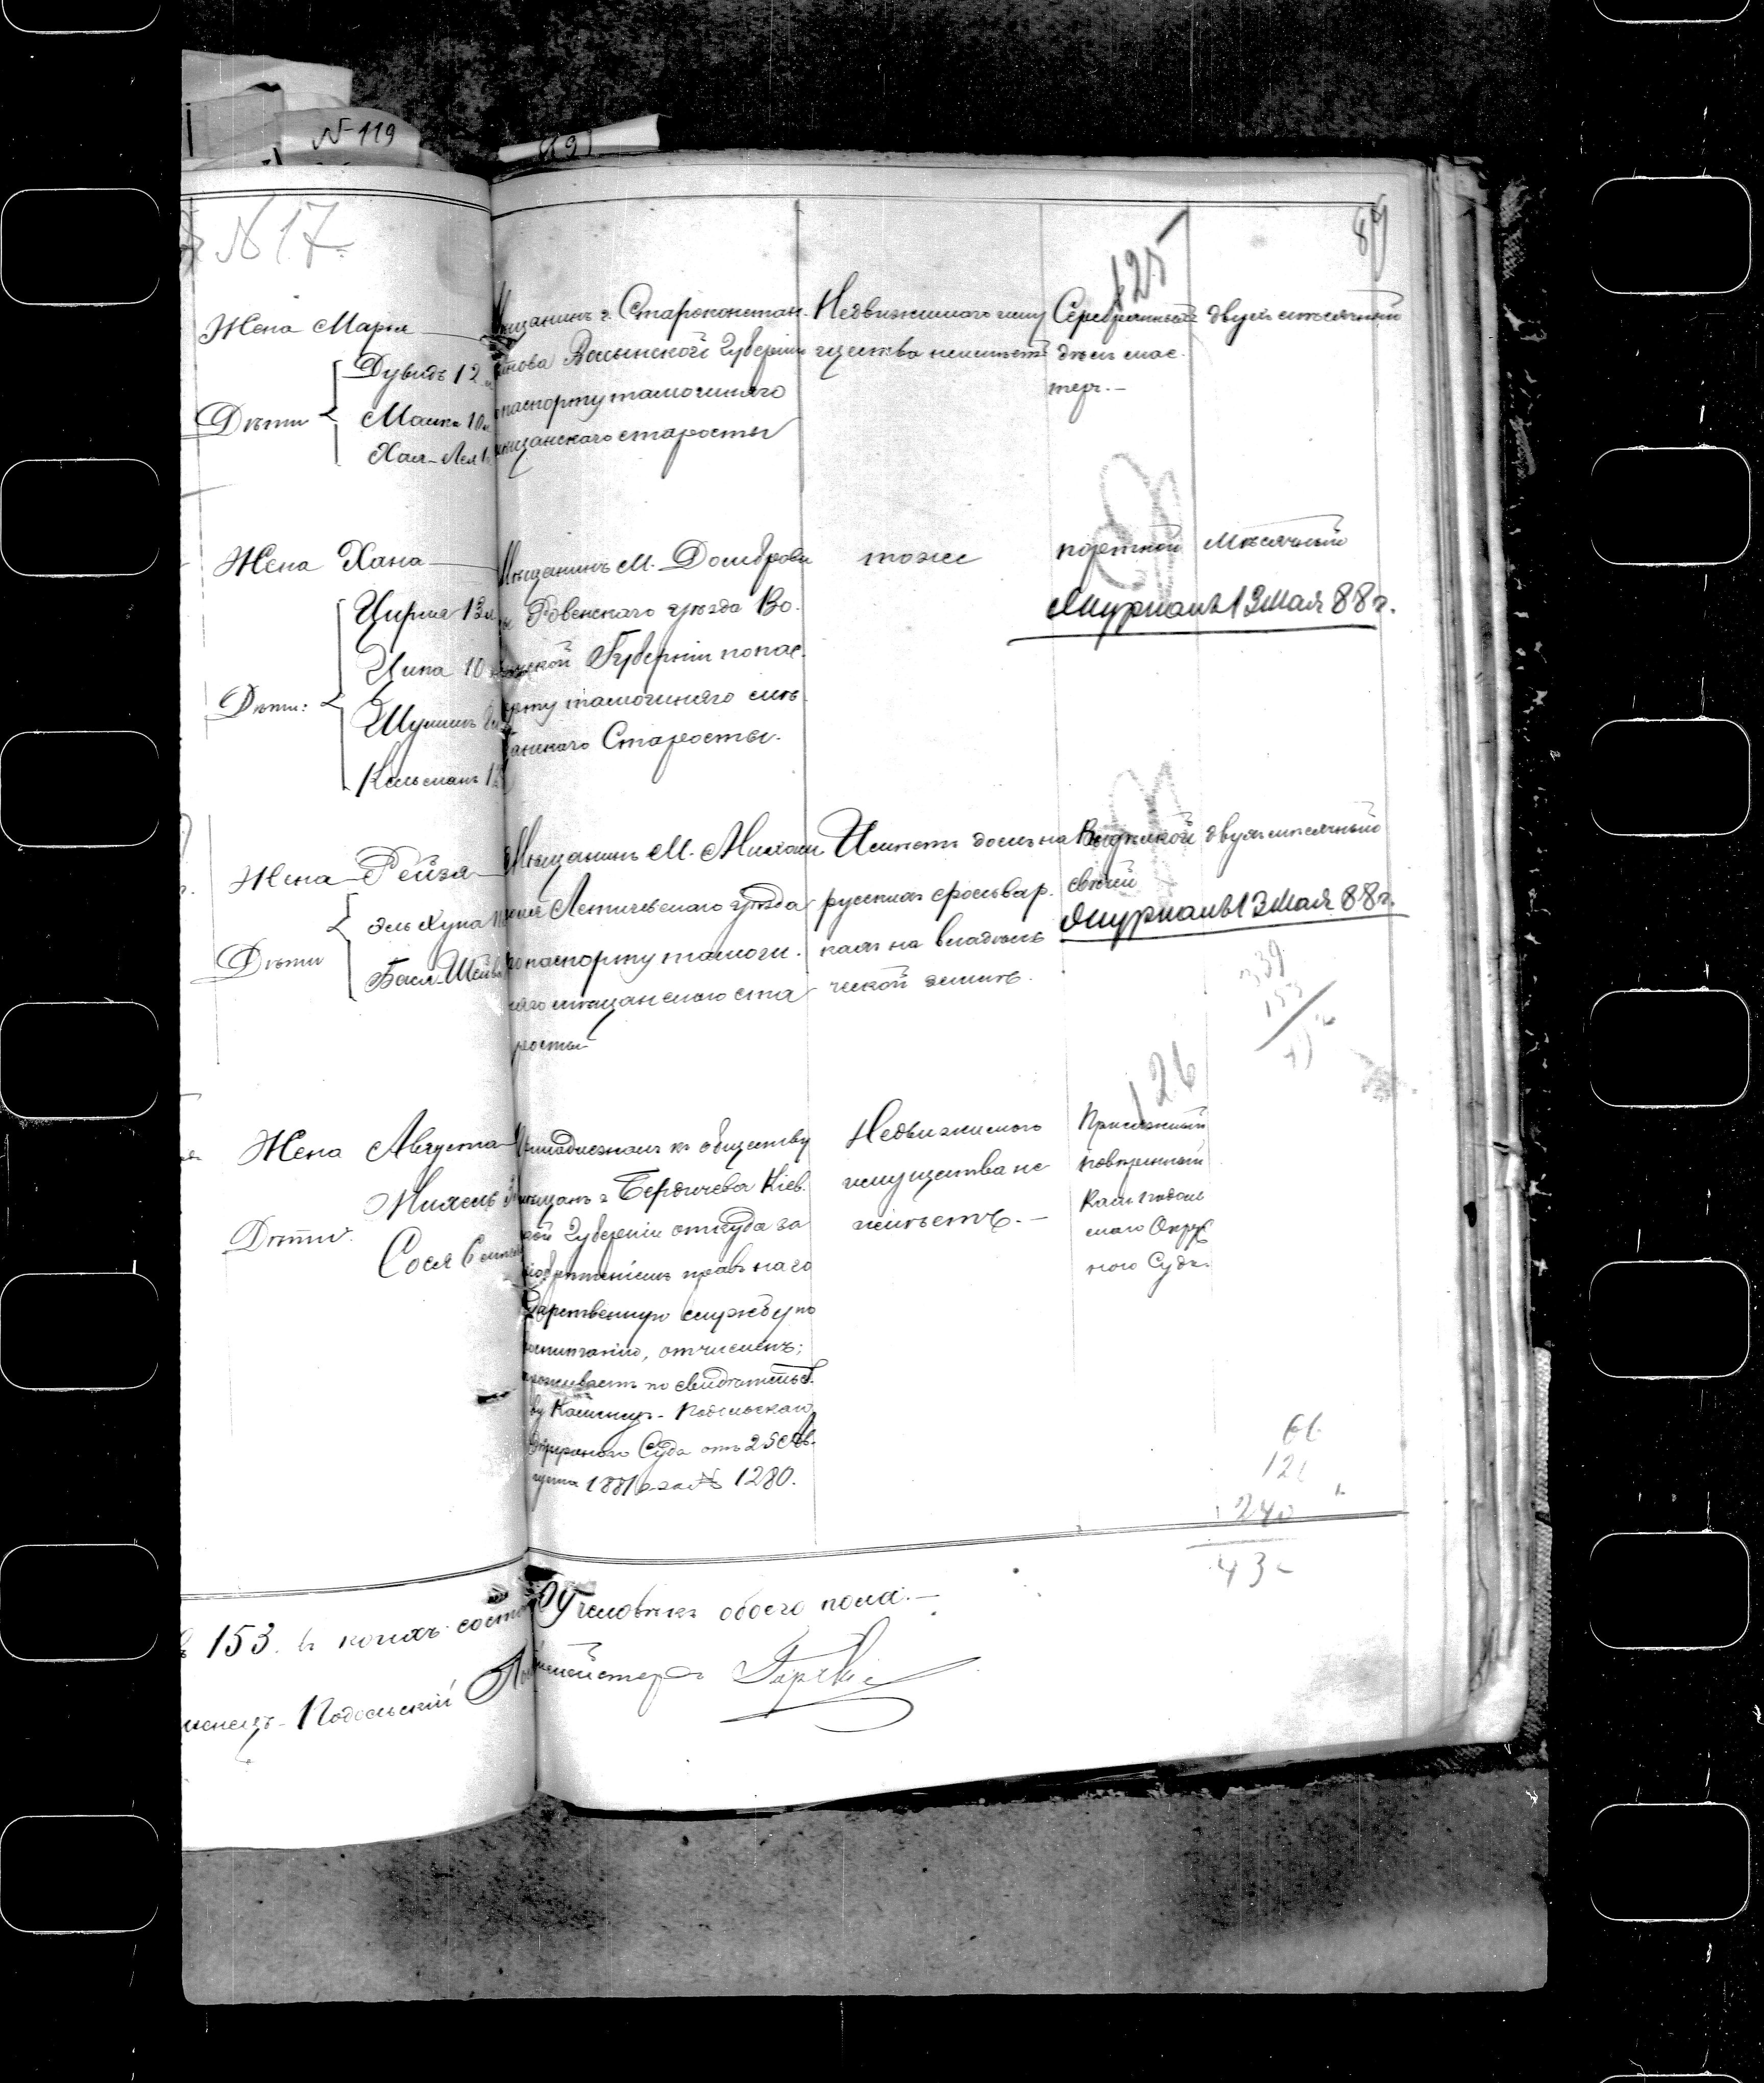 № 119
191
№ 17.
89
125
Жена Марья
Дувидъ 12
Дѣти
Машка 10
Хая-Лея
Мѣщанинъ г. Староконстан-
тинова Волынской Губерніи
паспорту тамошняго
мѣщанскаго старосты
Недвижимаго иму
щества неимѣетъ
Серебрянныхъ
дѣлъ мас-
теръ.
двухмѣсячный
Жена Хана
Цирля 13
Ципа 10
Дѣти:
Шулимъ
Кельманъ
Мѣщанинъ М. Домброви
Ровенскаго уѣзда Во-
лынской Губерніи попас-
порту тамошняго мѣ-
щанскаго Старосты.
тоже
портной
мѣсячный
Журналъ 13 мая 88 г.
Жена Рейзя
Дѣти
Бася Шейва
Мѣщанинъ М. Михалп
Летичевскаго уѣзда
по паспорту тамош-
няго мѣщанскаго ста
росты
Имѣетъ домъ на
русскихъ фольвар-
кахъ на владѣль
ческой землѣ.
Выдѣлкой
свѣчей
двухмѣсячный
Журналъ 13 мая 88 г.
339
153
126
Жена Августа
Михель
Дѣти
Сося 6
Принадлежалъ къ обществу
мѣщанъ г. Бердичева Кіев-
ской Губерніи откуда за
пріобрѣтеніемъ правъ на го
сударственную службу по
воспитанію, отчисленъ;
проживаетъ по свидѣтельст-
ву Каменецъ-Подольскаго
Окружнаго Суда отъ 25 Ав-
густа 1881 г. за № 1280.
Недвижимаго
имущества не
имѣетъ.
Присяжный
повѣренный
Кам. Подоль
скаго Окруж
наго Суда.
240
153. въ коихъ состо
человѣкъ обоего пола.
менецъ-Подольскій Полиціймейстеръ